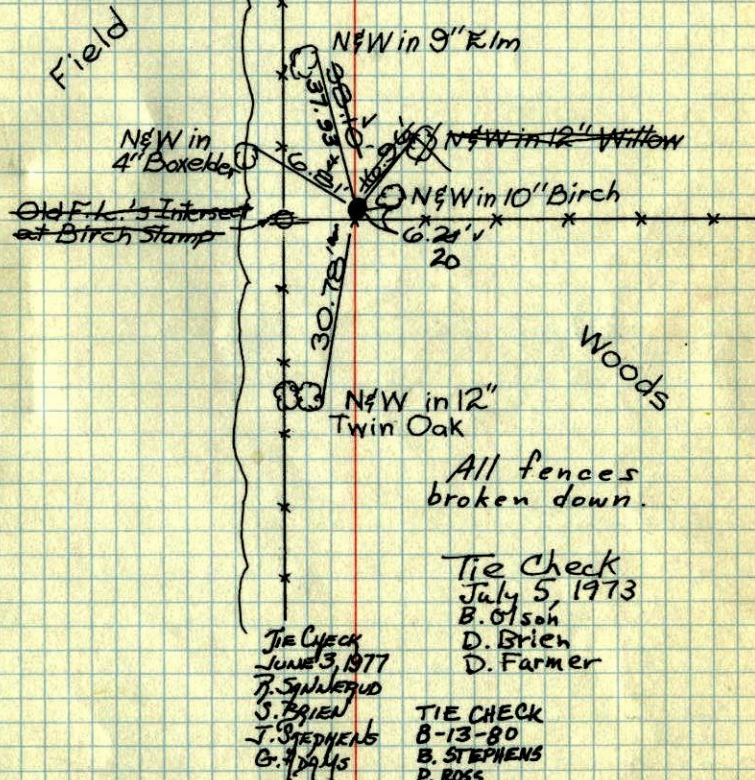 Field
N&W in 9" Elm
37.93
N&W in
4" Boxelder
N&W in 12" Willow
6.8
N&W in 10" Birch
Old F.L.'s Intersect
at Birch Stump
6.21'
20
30.78'
Woods
N&W in 12"
Twin Oak
All fences
broken down.
Tie Check
July 5, 1973
B. Olson
D. Brien
D. Farmer
TIE CHECK
JUNE 3, 1977
R. SANNERUD
S. BRIEN
J. STEPHENS
G. ADAMS
TIE CHECK
8-13-80
B. STEPHENS
ROSS